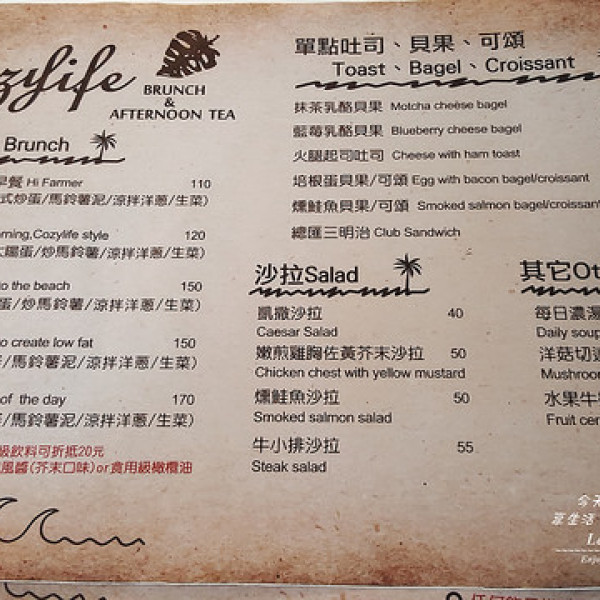 zylife
BRUNCH
&
AFTERNOON TEA
Brunch
早餐 Hi Farmer 110
式炒蛋/馬鈴薯泥/涼拌洋蔥/生菜)
rning,Cozylife style 120
太陽蛋/炒馬鈴薯/涼拌洋蔥/生菜)
to the beach 150
蛋/炒馬鈴薯/涼拌洋蔥/生菜)
to create low fat 150
/馬鈴薯泥/涼拌洋蔥/生菜)
of the day 170
/馬鈴薯泥/涼拌洋蔥/生菜)
級飲料可折抵20元
風醬(芥末口味)or食用級橄欖油
單點吐司、貝果、可頌
Toast、Bagel、Croissant
抹茶乳酪貝果 Motcha cheese bagel
藍莓乳酪貝果 Blueberry cheese bagel
火腿起司吐司 Cheese with ham toast
培根蛋貝果/可頌 Egg with bacon bagel/croissant
燻鮭魚貝果/可頌 Smoked salmon bagel/croissant
總匯三明治 Club Sandwich
沙拉Salad
凱撒沙拉 40
Caesar Salad
嫩煎雞胸佐黃芥末沙拉 50
Chicken chest with yellow mustard
燻鮭魚沙拉 50
Smoked salmon salad
牛小排沙拉 55
Steak salad
其它Ot
每日濃湯
Daily soup
洋菇切
Mushroom
水果牛
Fruit cer
今天
享生活